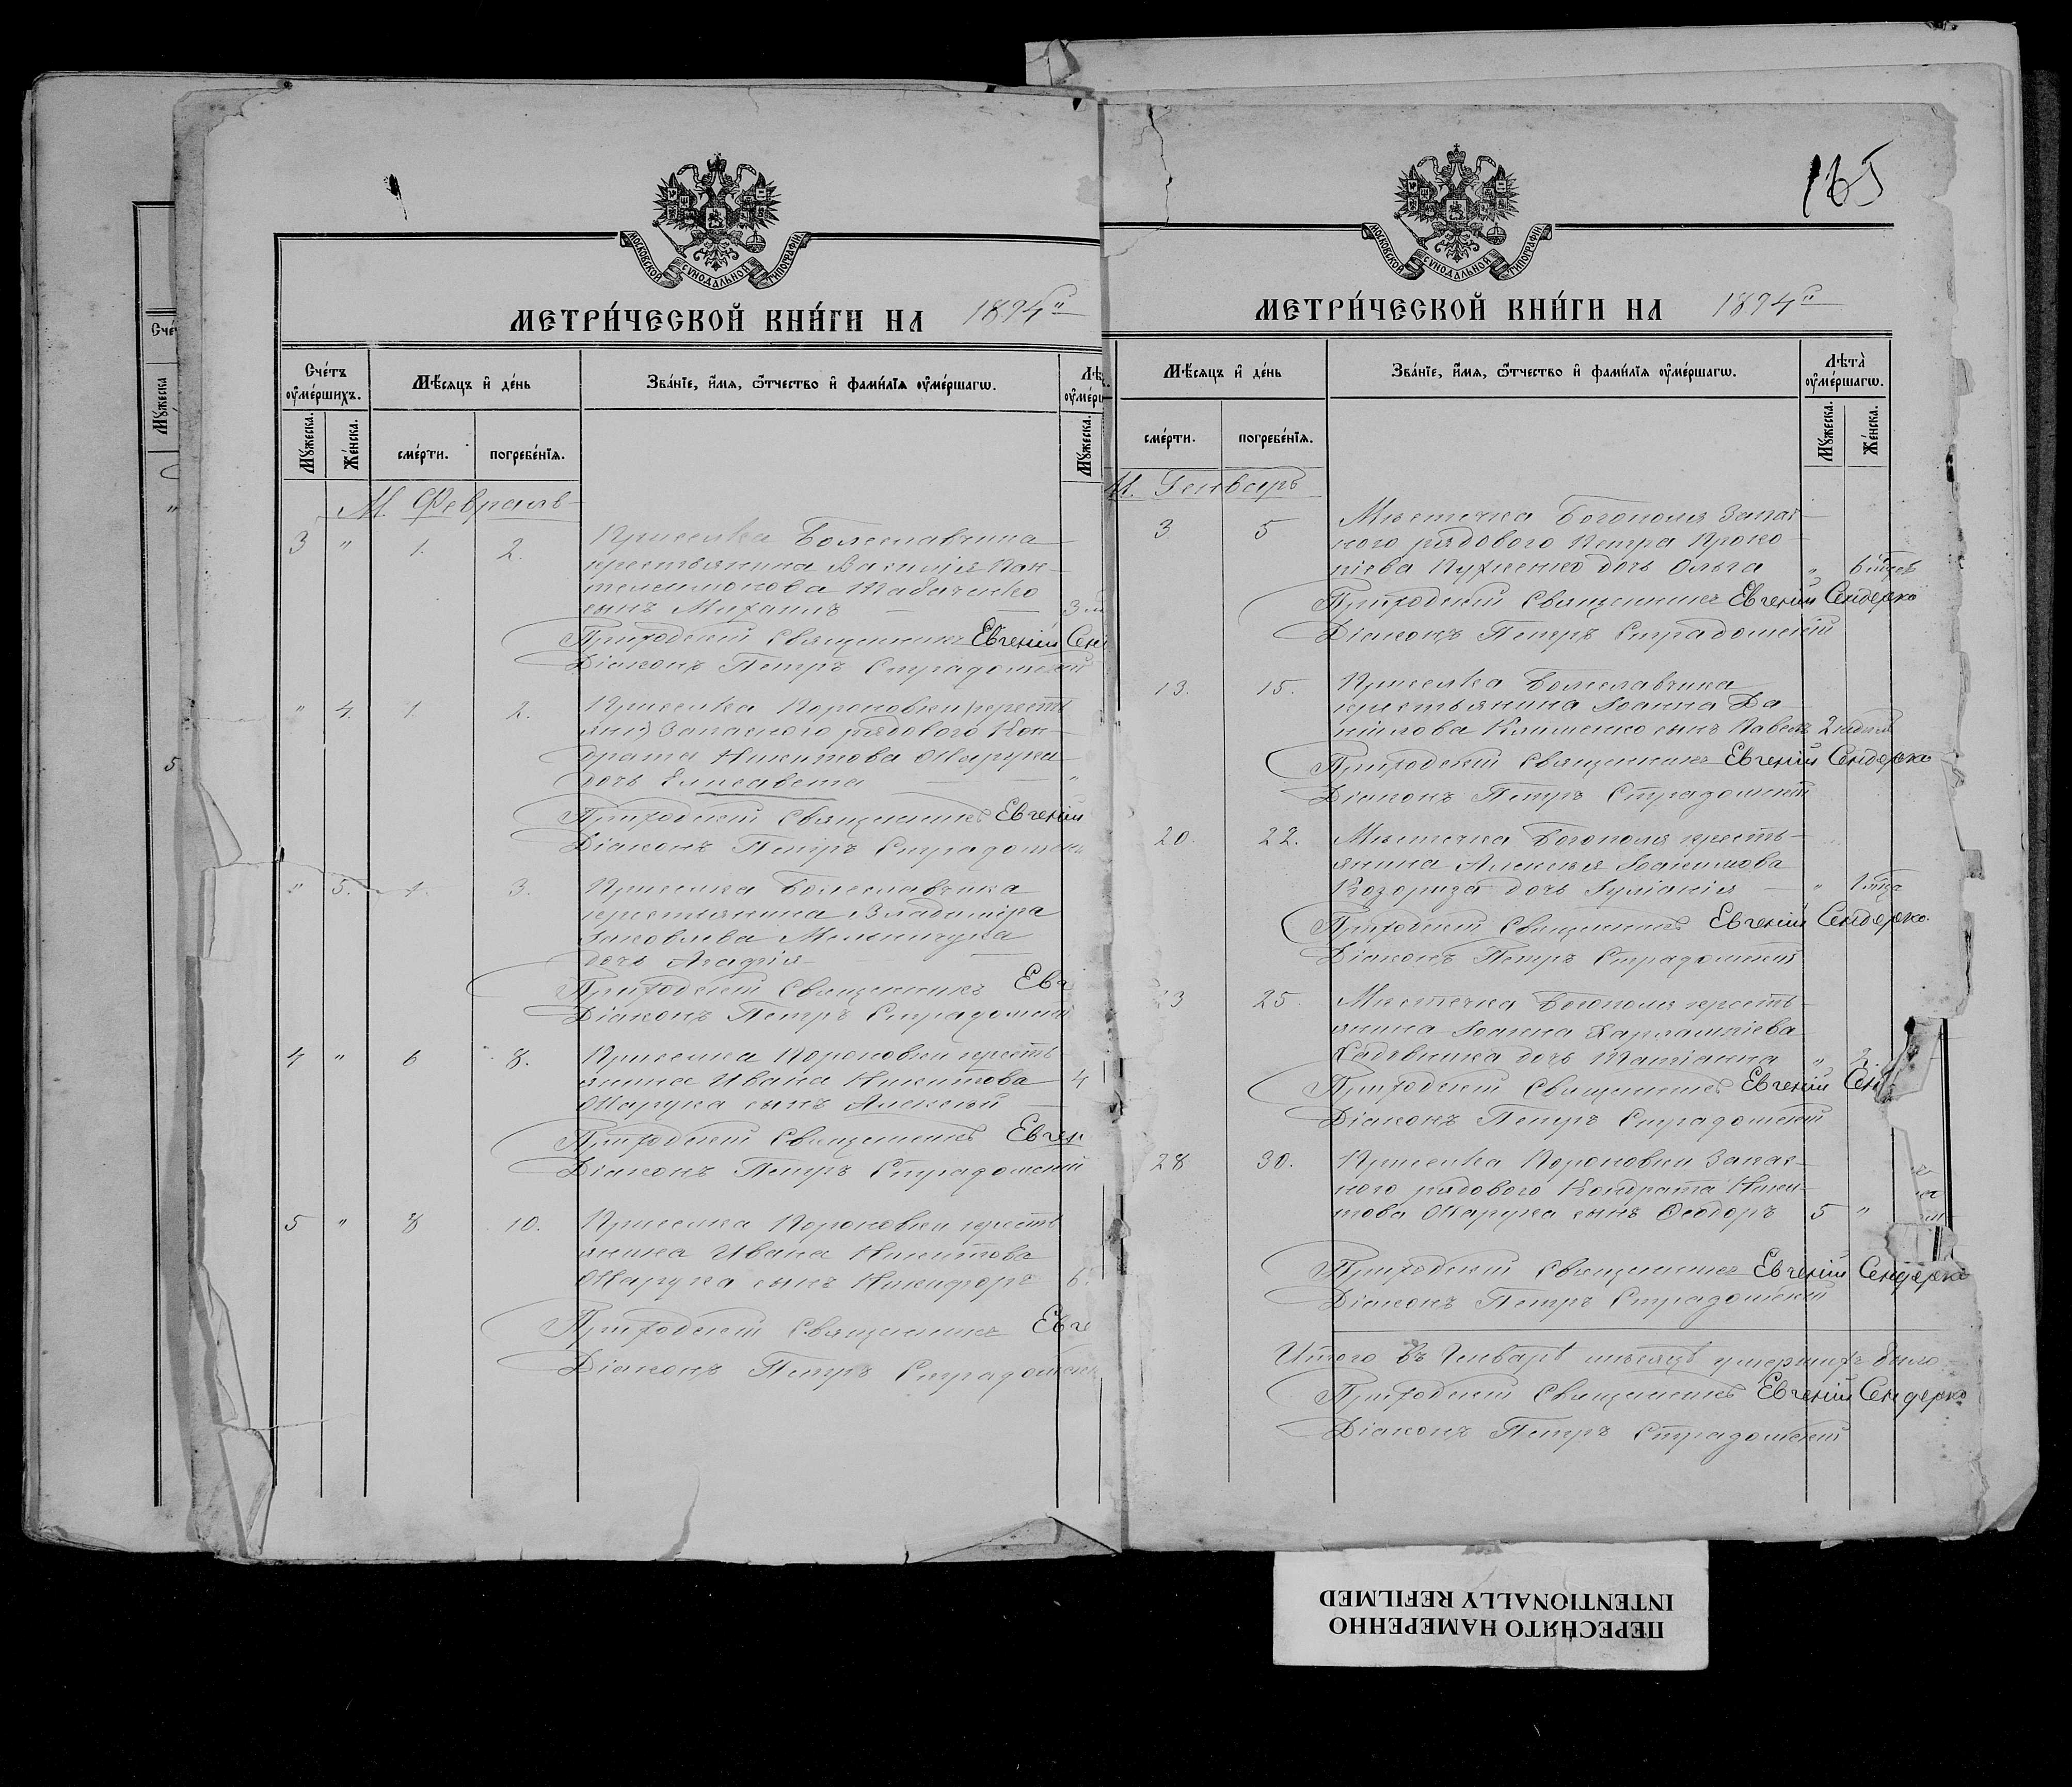 МОСКОВСКОЙ СѴНОДАЛЬНОЙ ТИПОГРАФІИ
МЕТРИ́ЧЕСКОЙ КНИ́ГИ НА 1894й
Сче́тъ ᲂу҆ме́ршихъ.
Мѣ́сяцъ и҆ де́нь
Зва́нїе, и҆́мя, ѻ҆́тчество и҆ фами́лїя ᲂу҆ме́ршагѡ.
Мꙋ́жеска.
Же́нска.
сме́рти.
погребе́нїя.
Мꙋ́жеска.
М. Февраль
3 " 1. 2. Приселка Болеславчика
крестьянина Василія Пан-
телеимонова Табаченко
сынъ Михаилъ 3
Приходскій Священникъ Евгеній Сен
Діаконъ Петръ Страдомскій
" 4. 1. 2. Приселка Пороновки крестъ
янина Запасного рядового Кон-
драта Никитова Шарука
дочь Елисавета "
Приходскій Священникъ Евгеній
Діаконъ Петръ Страдомскі
" 5. 1. 3. Приселка Болеславчика
крестьянина Владиміра
Яковлева Мельничука
дочь Агафія
Приходскій Священникъ Евг
Діаконъ Петръ Страдомскій
4 " 6 8. Приселка Пороновки кресть
янина Ивана Никитова 4
Шарука сынъ Алексѣй
Приходскій Священникъ Евген
Діаконъ Петръ Страдомскій
5 " 8 10. Приселка Пороновки кресть
янина Ивана Никитова
Шарука сынъ Никифоръ 6
Приходскій Священникъ Евге
Діаконъ Петръ Страдомскі
165
МОСКОВСКОЙ СѴНОДАЛЬНОЙ ТИПОГРАФІИ
МЕТРИ́ЧЕСКОЙ КНИ́ГИ НА 1894й
Мѣ́сяцъ и҆ де́нь
Зва́нїе, и҆́мя, ѻ҆́тчество и҆ фами́лїя ᲂу҆ме́ршагѡ.
Лѣта̀ ᲂу҆ме́ршагѡ.
сме́рти.
погребе́нїя.
Мꙋ́жеска.
Же́нска.
М. Генварь
3 5 Мѣстечка Богополя Запас-
ного рядового Петра Проко-
піева Пуженко дочь Ольга "
Приходскій Священникъ Евгеній Сендерко
Діаконъ Петръ Страдомскій
13. 15. Приселка Болеславчика
крестьянина Іоанна Да-
нилова Клименко сынъ Павелъ 2 недѣли
Приходскій Священникъ Евгеній Сендерко
Діаконъ Петръ Страдомскій
20. 22. Мѣстечка Богополя кресть-
янина Алексѣя Іоакимова
Козориза дочь Гуліанія "
Приходскій Священникъ Евгеній Сендерко.
Діаконъ Петръ Страдомскій
23 25. Мѣстечка Богополя кресть-
янина Іоанна Харлампіева
дочь Татіанна " 2
Приходскій Священникъ Евгеній Сен
Діаконъ Петръ Страдомскій
28 30. Приселка Пороновки Запас-
ного рядового Кондрата Ники-
това Шарука сынъ Ѳеодоръ 5 "
Приходскій Священникъ Евгеній Сендерко
Діаконъ Петръ Страдомскій
Итого въ Генварѣ мѣсяцѣ умершихъ было
Приходскій Священникъ Евгеній Сендерко
Діаконъ Петръ Страдомскій
ПЕРЕСНЯТО НАМЕРЕННО
INTENTIONALLY REFILMED